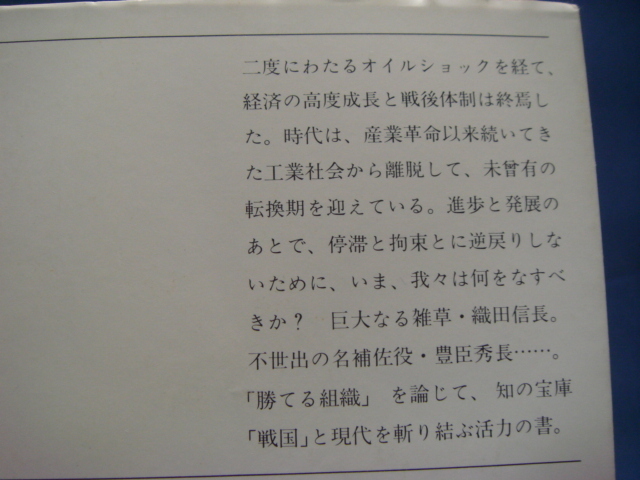 二度にわたるオイルショックを経て、
経済の高度成長と戦後体制は終焉し
た。時代は、産業革命以来続いてき
た工業社会から離脱して、未曾有の
転換期を迎えている。進歩と発展の
あとで、停滞と拘束とに逆戻りしな
いために、いま、我々は何をなすべ
きか？　巨大なる雑草・織田信長。
不世出の名補佐役・豊臣秀長……。
「勝てる組織」 を論じて、知の宝庫
「戦国」と現代を斬り結ぶ活力の書。